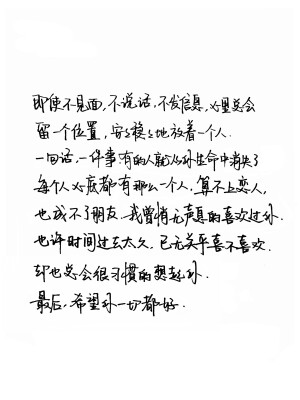 即使不见面，不说话，不发信息，心里总会
留一个位置，安安稳稳地放着一个人.
一句话，一件事，有的人就从你生命中消失了
每个人心底都有那么一个人，算不上恋人，
也成不了朋友，我曾悄无声息的喜欢过你.
也许时间过去太久，已无关乎喜不喜欢.
却也总会很习惯的想起你.
最后，希望你一切都好.